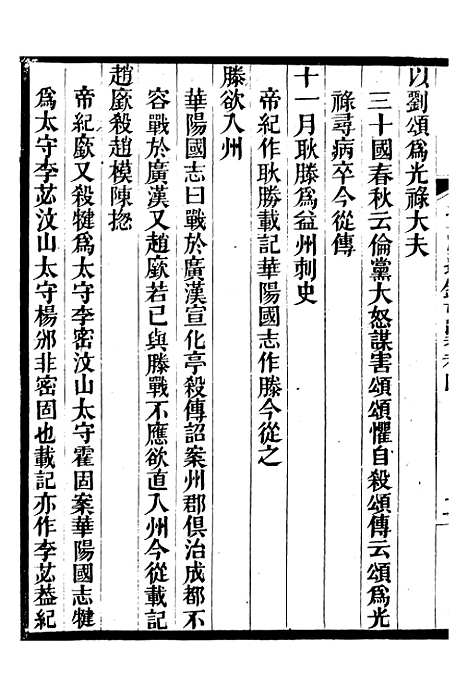 以劉頌爲光祿大夫
三十國春秋云倫黨大怒謀害頌頌懼自殺頌傳云頌爲光
祿尋病卒今從傳
十一月耿滕爲益州刺史
帝紀作耿勝載記華陽國志作滕今從之
滕欲入州
華陽國志曰戰於廣漢宣化亭殺傳詔案州郡俱治成都不
容戰於廣漢又趙廞若已與滕戰不應欲直入州今從載記
趙廞殺趙模陳揔
帝紀廞又殺犍爲太守李密汶山太守霍固案華陽國志犍
爲太守李苾汶山太守楊邠非密固也載記亦作李苾葢紀